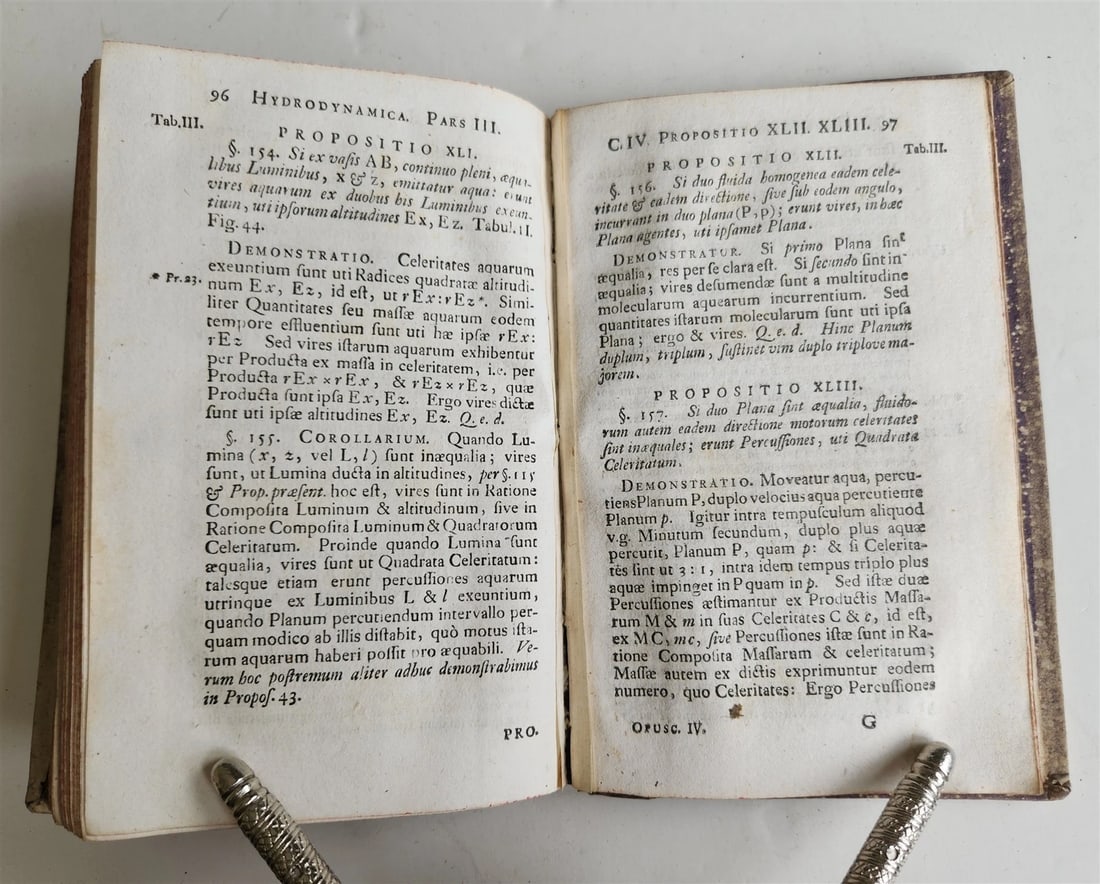 96 HYDRODYNAMICA. PARS III.
Tab.III.
PROPOSITIO XLI.
§. 154. Si ex vasis AB, continuo pleni, æqua-
libus Luminibus, x & z, emittatur aqua: erunt
vires aquarum ex duobus his Luminibus exeun-
tium, uti ipsorum altitudines Ex, Ez. Tabul.II.
Fig. 44.
DEMONSTRATIO. Celeritates aquarum
exeuntium sunt uti Radices quadratæ altitudi-
* Pr. 23.
num Ex, Ez, id est, ut rEx:rEz*. Simi-
liter Quantitates seu massæ aquarum eodem
tempore effluentium sunt uti hæ ipsæ rEx:
rEz Sed vires istarum aquarum exhibentur
per Producta ex massa in celeritatem, i.e. per
Producta rEx × rEx, & rEz × rEz, quæ
Producta sunt ipsa Ex, Ez. Ergo vires dictæ
sunt uti ipsæ altitudines Ex, Ez. Q. e. d.
§. 155. COROLLARIUM. Quando Lu-
mina (x, z, vel L, l) sunt inæqualia; vires
sunt, ut Lumina ducta in altitudines, per §. 115
& Prop. præsent. hoc est, vires sunt in Ratione
Composita Luminum & altitudinum, sive in
Ratione Composita Luminum & Quadratorum
Celeritatum. Proinde quando Lumina sunt
æqualia, vires sunt ut Quadrata Celeritatum:
talesque etiam erunt percussiones aquarum
utrinque ex Luminibus L & l exeuntium,
quando Planum percutiendum intervallo per-
quam modico ab illis distabit, quò motus ista-
rum aquarum haberi possit pro æquabili. Ve-
rum hoc postremum aliter adhuc demonstrabimus
in Propos. 43.
PRO.
C. IV. PROPOSITIO XLII. XLIII. 97
PROPOSITIO XLII.
Tab.III.
§. 156. Si duo fluida homogenea eadem cele-
ritate & eadem directione, sive sub eodem angulo,
incurrant in duo plana (P, p); erunt vires, in hæc
Plana agentes, uti ipsamet Plana.
DEMONSTRATUR. Si primo Plana sint
æqualia, res per se clara est. Si secundo sint in
æqualia; vires desumendæ sunt a multitudine
molecularum aquearum incurrentium. Sed
quantitates istarum molecularum sunt uti ipsa
Plana; ergo & vires. Q. e. d. Hinc Planum
duplum, triplum, sustinet vim duplo triplove ma-
jorem.
PROPOSITIO XLIII.
§. 157. Si duo Plana sint æqualia, fluido-
rum autem eadem directione motorum celeritates
sint inæquales; erunt Percussiones, uti Quadrata
Celeritatum.
DEMONSTRATIO. Moveatur aqua, percu-
tiens Planum P, duplo velocius aqua percutiente
Planum p. Igitur intra tempusculum aliquod
v.g. Minutum secundum, duplo plus aquæ
percutit, Planum P, quam p: & si Celerita-
tes sint ut 3 : 1, intra idem tempus triplo plus
aquæ impinget in P quam in p. Sed istæ duæ
Percussiones æstimantur ex Productis Massa-
rum M & m in suas Celeritates C & c, id est,
ex MC, mc, sive Percussiones istæ sunt in Ra-
tione Composita Massarum & celeritatum;
Massæ autem ex dictis exprimuntur eodem
numero, quo Celeritates: Ergo Percussiones
OPUSC. IV. G